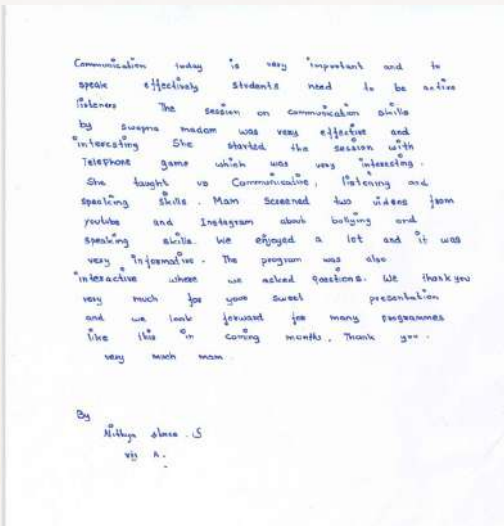 Communication today is very important and to
speak effectively students need to be active
listeners The session on communication skills
by Swapna madam was very effective and
interesting She started the session with
Telephone game which was very interesting.
She taught us Communicative, listening and
speaking skills. Mam Screened two videos from
youtube and Instagram about bullying and
speaking skills. We enjoyed a lot and it was
very informative. The program was also
interactive where we asked questions. We thank you
very much for your sweet presentation
and we look forward for many programmes
like this in coming months. Thank you.
very much mam
By
Nithya . S
A.